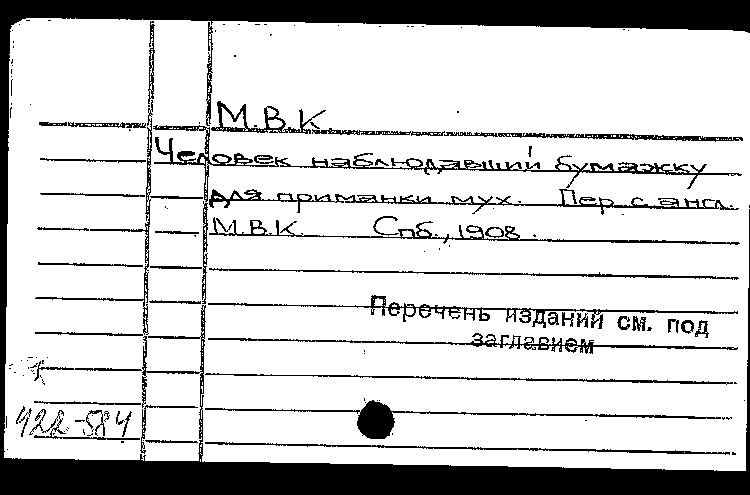 М.В.К.
Человек наблюдавший бумажку
для приманки мух. Пер. с англ.
М.В.К. Спб., 1908.
Перечень изданий см. под
заглавием
422-584